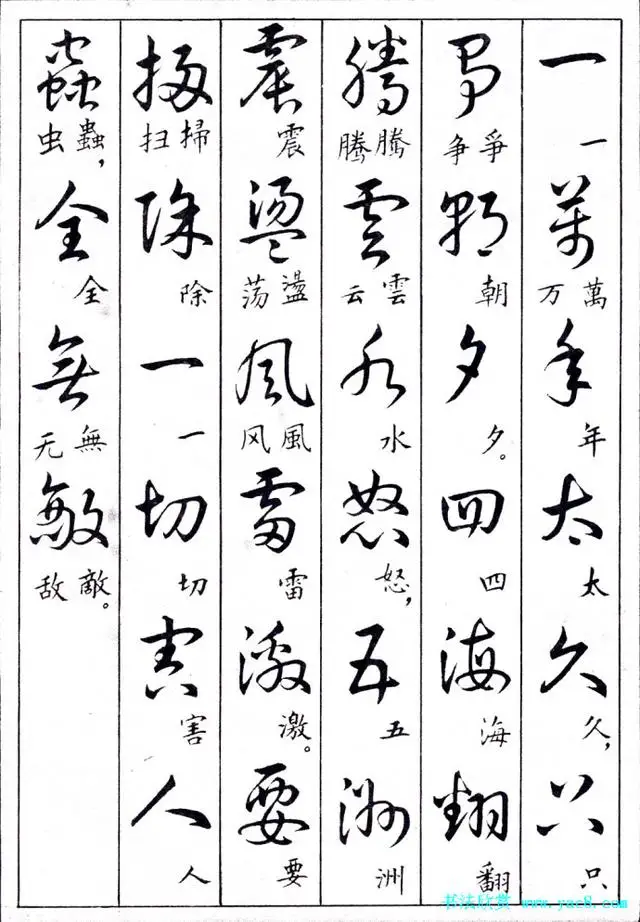 一 一 萬 萬万 年 年 太 太 久 久， 只 只
爭 爭争 朝 朝 夕 夕。 四 四 海 海 翻 翻
騰 騰腾 雲 雲云 水 水 怒 怒， 五 五 洲 洲
震 震 盪 盪荡 風 風风 雷 雷 激 激。 要 要
掃 掃扫 除 除 一 一 切 切 害 害 人 人
蟲 蟲，虫 全 全 無 無无 敵 敵。敌
书法欣赏 www.yac8.com